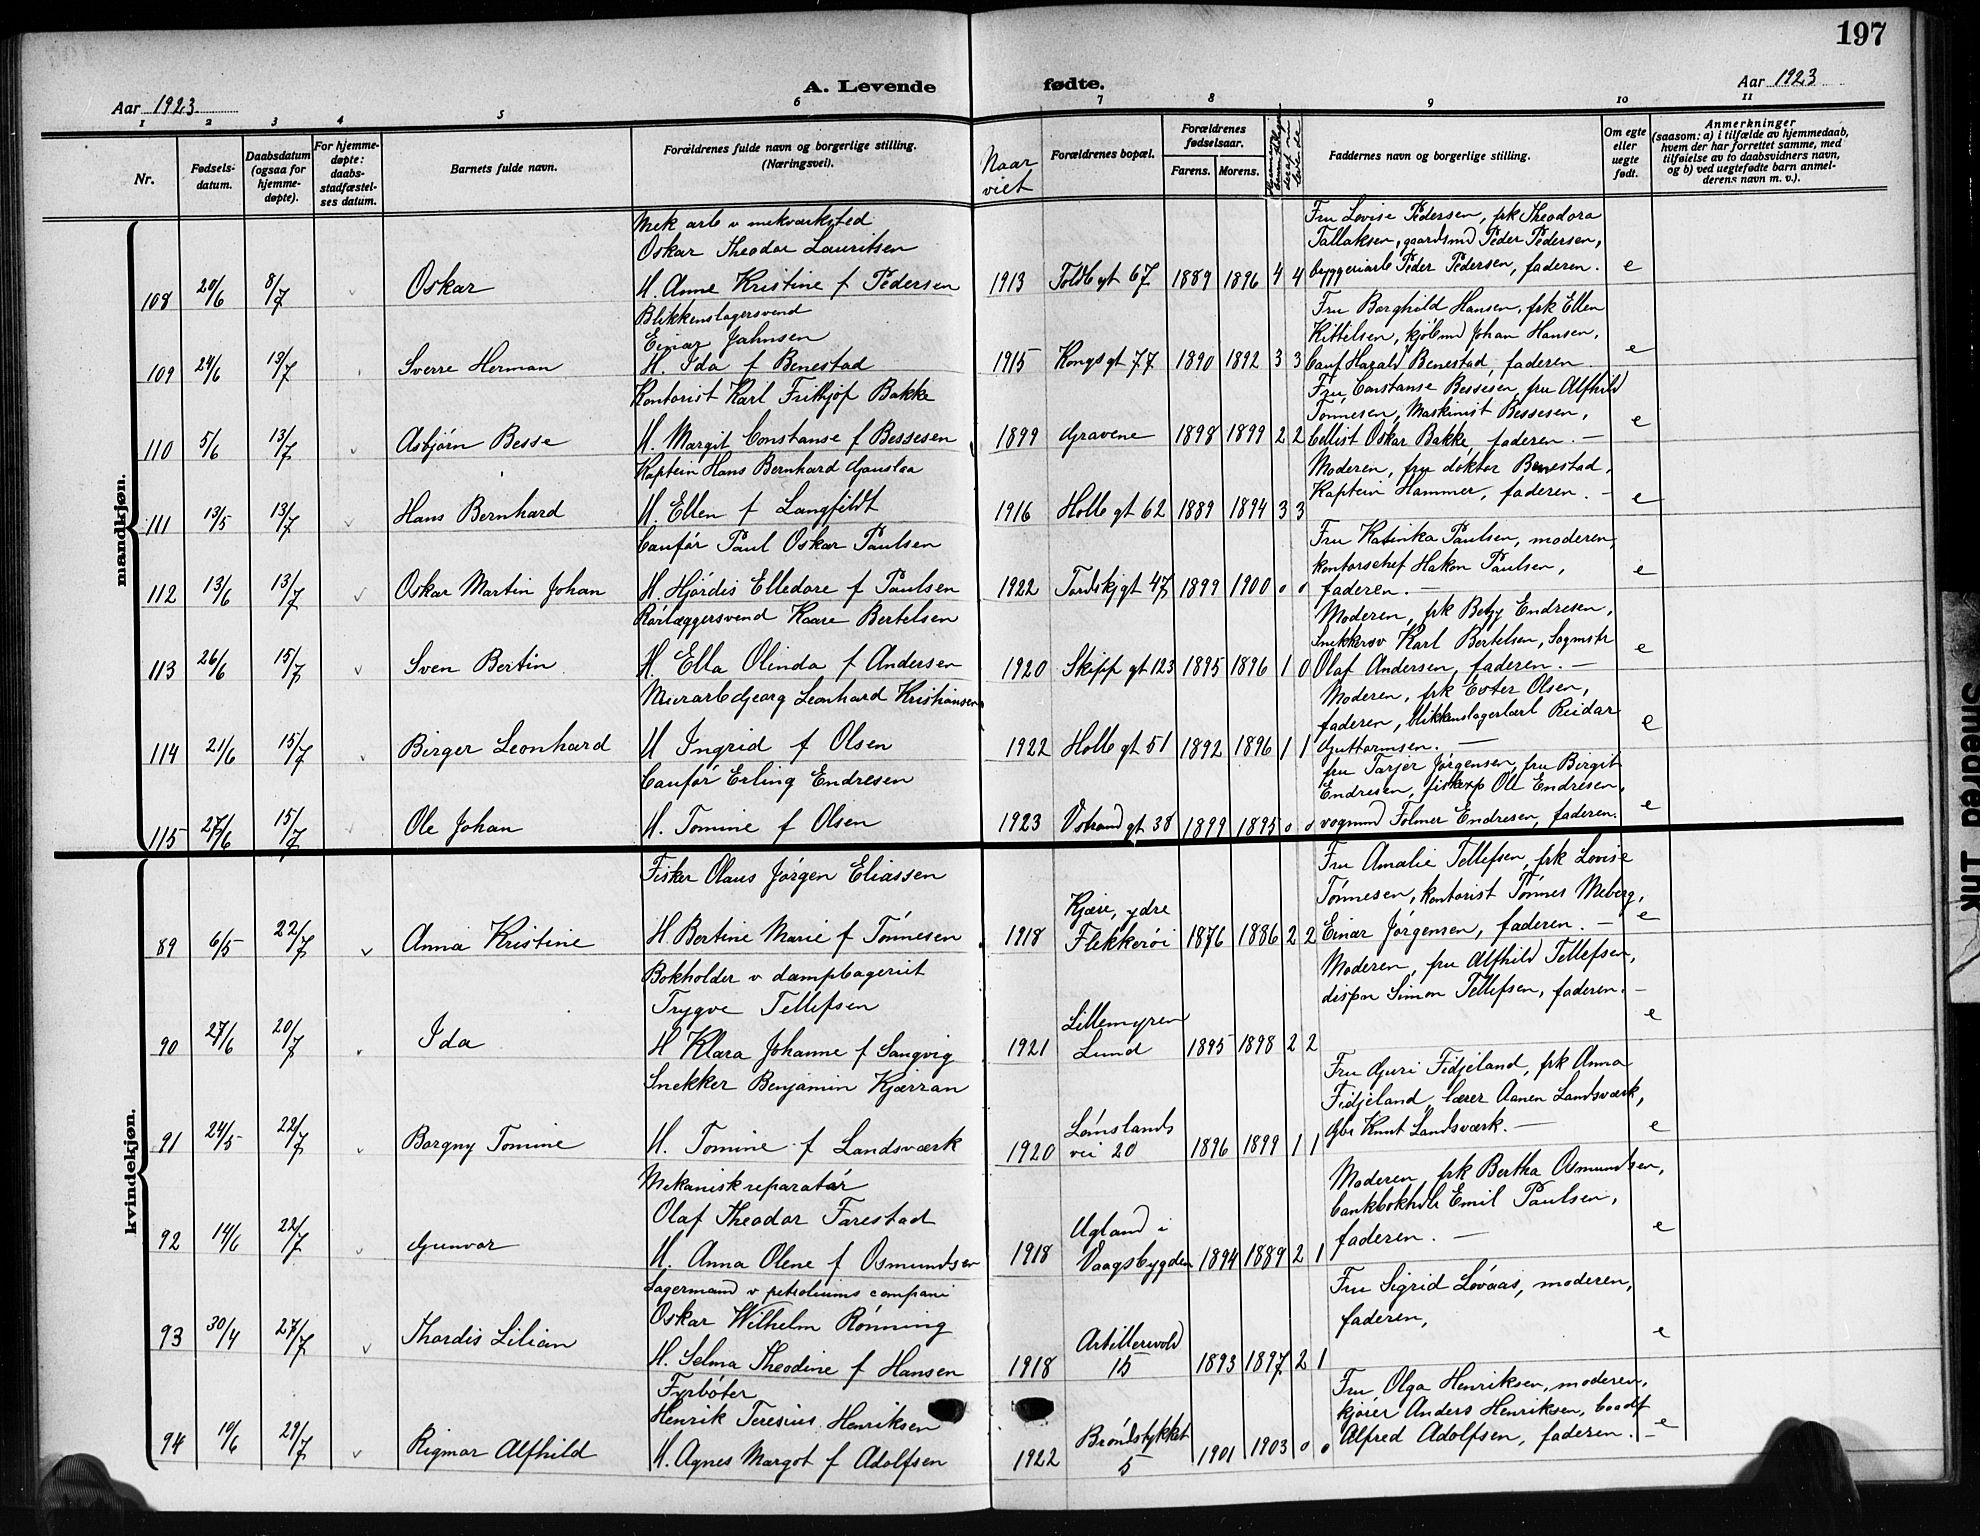 197
A. Levende fødte.
Aar 1923
Aar 1923
1 2 3 4 5 6 7 8 9 10 11
Nr.
Fødsels-
datum.
Daabsdatum
(ogsaa for
hjemme-
døpte).
For hjemme-
døpte:
daabs-
stadfæstel-
ses datum.
Barnets fulde navn.
Forældrenes fulde navn og borgerlige stilling.
(Næringsvei).
Naar
viet
Forældrenes bopæl.
Forældrenes
fødselsaar.
Farens.
Morens.
Faddernes navn og borgerlige stilling.
Om egte
eller
uegte
født.
Anmerkninger
(saasom: a) i tilfælde av hjemmedaab,
hvem der har forrettet samme, med
tilføielse av to daabsvidners navn,
og b) ved uegtefødte barn anmel-
derens navn m. v.).
mandkjøn.
Mek arb v mekværksted
Oskar Theodor Lauritsen
108 20/6 8/7 Oskar H. Anne Kristine f Pedersen 1913 Toldb gt 67 1889 1896 4 4
Fru Lovise Pedersen, frk Theodora
Tallaksen, gaardsmd Peder Pedersen,
bryggeriarb Peder Pedersen, faderen. e
Blikkenslagersvend
Einar Jahnsen
109 24/6 13/7 Sverre Herman H. Ida f Benestad 1915 Kongs gt 77 1890 1892 3 3
Fru Borghild Hansen, frk Ellen
Kittelsen, kjøbmd Johan Hansen,
Cauf Harald Benestad, faderen e
Kontorist Karl Frithjof Bakke
110 5/6 13/7 Asbjørn Besse H. Margit Constanse f Bessesen 1899 Gravene 1898 1899 2 2
Fru Constanse Bessesen, fru Alfhild
Tønnesen, Maskinist Bessesen,
Cellist Oskar Bakke, faderen. — e
Kaptein Hans Bernhard Gauslaa
111 13/5 13/7 Hans Bernhard H. Ellen f Langfeldt 1916 Holb gt 62 1889 1894 3 3
Moderen, fru doktor Benestad,
Kaptein Hammer, faderen. — e
Caufør Paul Oskar Paulsen
112 13/6 13/7 Oskar Martin Johan H. Hjørdis Elledore f Paulsen 1922 Tordskj gt 47 1899 1900 0 0
Fru Katinka Paulsen, moderen,
kontorschef Hakon Paulsen,
faderen. — e
Rørlæggersvend Kaare Bertelsen
113 26/6 15/7 Sven Bertin H. Ella Olinda f Andersen 1920 Skipp gt 123 1895 1896 1 0
Moderen, frk Betzy Endresen,
Snekkersv Karl Bertelsen, Sogmstr
Olaf Andersen, faderen. — e
Murarb Georg Leonhard Kristiansen
114 21/6 15/7 Birger Leonhard H Ingrid f Olsen 1922 Holb gt 51 1892 1896 1 1
Moderen, frk Ester Olsen,
faderen, blikkenslagerlærl Reidar
Guttormsen. — e
Caufør Erling Endresen
115 27/6 15/7 Ole Johan H. Tomine f Olsen 1923 Vstrand gt 38 1899 1895 0 0
fru Tarjer Jørgensen, fru Birgit
Endresen, fiskexp Ole Endresen,
vognmd Folmer Endresen, faderen. e
kvindekjøn.
Fisker Olaus Jørgen Eliassen
89 6/5 22/7 Anna Kristine H. Bertine Marie f Tønnesen 1918 Kjære, ydre
Flekkerøi 1876 1886 2 2
Fru Amalie Tellefsen, frk Lovise
Tønnesen, kontorist Tønnes Meberg,
Einar Jørgensen, faderen. — e
Bokholder v dampbageriet
Trygve Tellefsen
90 27/6 20/7 Ida H Klara Johanne f Sangvig 1921 Lillemyren
Lund 1895 1898 2 2
Moderen, fru Alfhild Tellefsen,
dispon Simon Tellefsen, faderen. — e
Snekker Benjamin Kjærran
91 24/5 22/7 Borgny Tomine H. Tomine f Landsværk 1920 Lømslands
vei 20 1896 1899 1 1
Fru Guri Fidjeland, frk Anna
Fidjeland, lærer Aanen Landsværk,
Gbr Knut Landsværk. — e
Mekanisk reparatør
Olaf Theodor Farestad
92 14/6 22/7 Gunvor H. Anna Olene f Osmundsen 1918 Ugland i
Vaagsbygden 1894 1889 2 1
Moderen, frk Bertha Osmundsen,
bankbokhdlr Emil Paulsen,
faderen. — e
Lagermand v petroliums compani
Oskar Wilhelm Rønning
93 30/4 27/7 Thordis Lilian H. Selma Theodine f Hansen 1918 Artillerivold
15 1893 1897 2 1
Fru Sigrid Løvaas, moderen,
faderen, e
Fyrbøter
Henrik Teresius Henriksen
94 10/6 29/7 Rigmor Alfhild H. Agnes Margot f Adolfsen 1922 Brøndstykket
5 1901 1903 0 0
Fru Olga Henriksen, moderen,
kjører Anders Henriksen, baadf
Alfred Adolfsen, faderen. — e
Smeared Ink